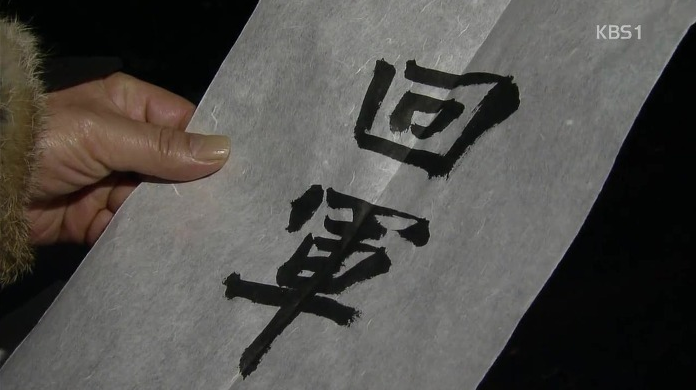 KBS1
回軍